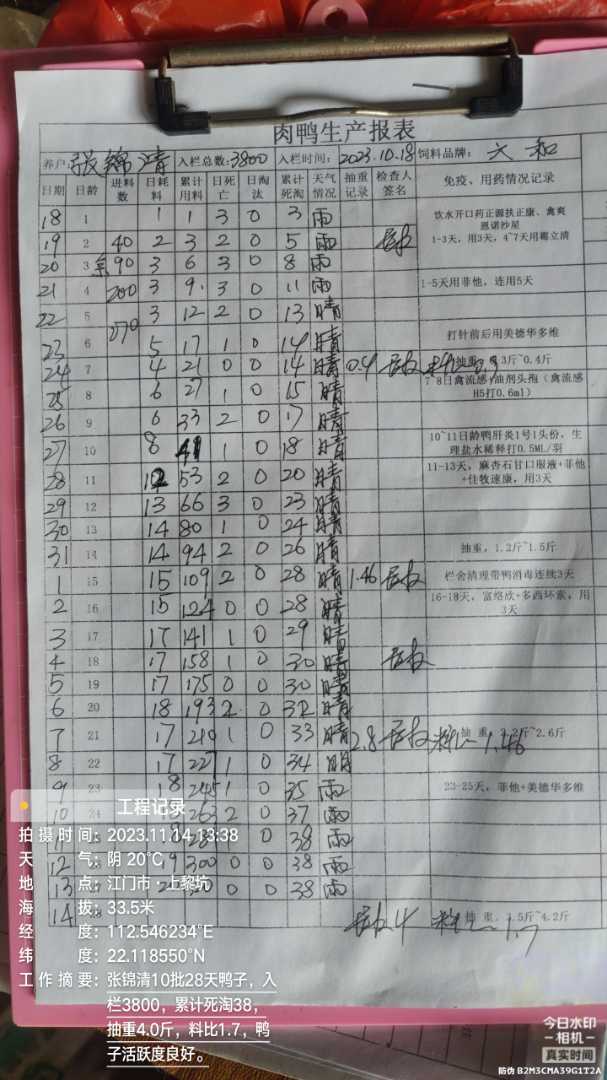 肉鸭生产报表
养户: 张锦清 入栏总数: 3800 入栏时间: 2023.10.18 饲料品牌: 六和
日期 日龄 进料数 日耗料 累计用料 日死亡 日淘汰 累计死淘 天气情况 抽重记录 检查人签名 免疫、用药情况记录
18 1 1 1 3 0 3 雨 饮水开口药正源扶正康、禽爽恩诺沙星
19 2 40 2 3 2 0 5 雨 1-3天，用3天，4~7天用
20 3 90 3 6 3 0 8 雨
21 4 200 3 9 3 0 11 雨 1-5天用菲他，连用5天
22 5 270 3 12 2 0 13 晴
23 6 5 17 1 0 14 晴 打针前后用美德华多维
24 7 4 21 0 0 14 晴 0.4 抽重 0.3斤~0.4斤
25 8 6 27 1 0 15 晴 7-8日禽流感+油剂头孢（禽流感H5打0.6ml）
26 9 6 33 2 0 17 晴
27 10 8 41 1 0 18 晴 10~11日龄鸭肝炎1号1头份，生理盐水稀释打0.5ML/羽
28 11 12 53 2 0 20 晴 11-13天，麻杏石甘口服液+菲他+住牧速康，用3天
29 12 13 66 3 0 23 晴
30 13 14 80 1 0 24 晴
31 14 14 94 2 0 26 晴 抽重，1.2斤~1.5斤
1 15 15 109 2 0 28 晴 1.46 栏舍清理带鸭消毒连续3天
2 16 15 124 0 0 28 晴 16-18天，富络欣+多西环素，用3天
3 17 17 141 1 0 29 晴
4 18 17 158 1 0 30 晴
5 19 17 175 0 0 30 晴
6 20 18 193 2 0 32 晴
7 21 17 210 1 0 33 晴 2.8 抽重 2.2斤~2.6斤 1.46
8 22 17 227 1 0 34 明
9 23 18 245 1 0 35 雨 23-25天，菲他+美德华多维
10 263 2 0 37 雨
0 38 雨
12 19 300 0 0 38 雨
13 0 0 38 雨
14 4 抽重，3.5斤~4.2斤 1.7
工程记录
拍摄时间: 2023.11.14 13:38
天气: 阴 20℃
地点: 江门市·上黎坑
海拔: 33.5米
经度: 112.546234°E
纬度: 22.118550°N
工作摘要: 张锦清10批28天鸭子，入
栏3800，累计死淘38，
抽重4.0斤，料比1.7，鸭
子活跃度良好。
今日水印
相机
真实时间
防伪 B2M3CMA39G1T2A